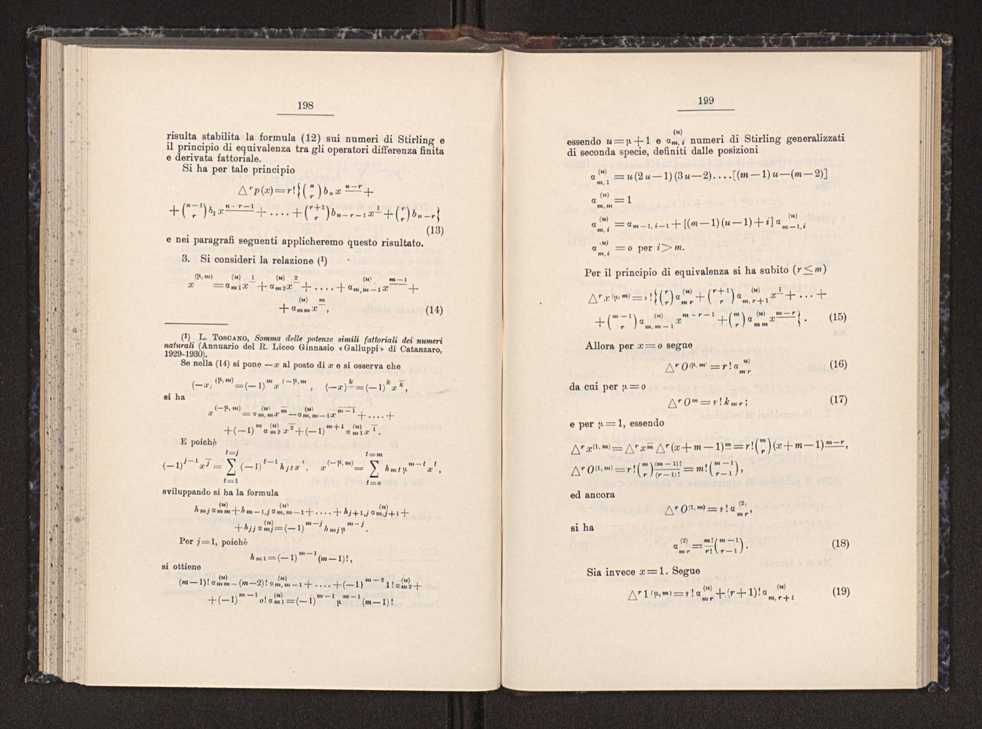 198
risulta stabilita la formula (12) sui numeri di Stirling e
il principio di equivalenza tra gli operatori differenza finita
e derivata fattoriale.
Si ha per tale principio
△^r p(x) = r! { (u r) b_o x^{u-r} +
+ (u-1 r) b_1 x^{u-r-1} + .... + (r+1 r) b_{u-r-1} x^1 + (r r) b_{u-r} }
(13)
e nei paragrafi seguenti applicheremo questo risultato.
3. Si consideri la relazione (¹)
x^{(μ,m)} = a_{m1}^{(u)} x^1 + a_{m2}^{(u)} x^2 + .... + a_{m,m-1}^{(u)} x^{m-1} +
+ a_{mm}^{(u)} x^m, (14)
(¹) L. TOSCANO, Somma delle potenze simili fattoriali dei numeri
naturali (Annuario del R. Liceo Ginnasio «Galluppi» di Catanzaro,
1929-1930).
Se nella (14) si pone —x al posto di x e si osserva che
(-x)^{(μ,m)} = (-1)^m x^{(-μ,m)}, (-x)^k = (-1)^k x^k,
si ha
x^{(-μ,m)} = a_{m,m}^{(u)} x^m - a_{m,m-1}^{(u)} x^{m-1} + .... +
+ (-1)^m a_{m2}^{(u)} x^2 + (-1)^{m+1} a_{m1}^{(u)} x^1.
E poichè
(-1)^{j-1} x^j = ∑_{t=1}^{t=j} (-1)^{t-1} h_{jt} x^t, x^{(-μ,m)} = ∑_{t=o}^{t=m} h_{mt} μ^{m-t} x^t,
sviluppando si ha la formula
h_{mj} a_{mm}^{(u)} + h_{m-1,j} a_{m,m-1}^{(u)} + .... + h_{j+1,j} a_{m,j+1}^{(u)} +
+ h_{jj} a_{mj}^{(u)} = (-1)^{m-j} h_{mj} μ^{m-j}.
Per j=1, poichè
h_{m1} = (-1)^{m-1} (m-1)!,
si ottiene
(m-1)! a_{mm}^{(u)} - (m-2)! a_{m,m-1}^{(u)} + .... + (-1)^{m-2} 1! a_{m2}^{(u)} +
+ (-1)^{m-1} o! a_{m1}^{(u)} = (-1)^{m-1} μ^{m-1} (m-1)!
199
essendo u=μ+1 e a_{m,i}^{(u)} numeri di Stirling generalizzati
di seconda specie, definiti dalle posizioni
a_{m,1}^{(u)} = u(2u-1)(3u-2)....[(m-1)u-(m-2)]
a_{m,m}^{(u)} = 1
a_{m,i}^{(u)} = a_{m-1,i-1} + [(m-1)(u-1)+i] a_{m-1,i}^{(u)}
a_{m,i}^{(u)} = o per i>m.
Per il principio di equivalenza si ha subito (r≤m)
△^r x^{(μ,m)} = r! { (r r) a_{mr}^{(u)} + (r+1 r) a_{m,r+1}^{(u)} x^1 + ... +
+ (m-1 r) a_{m,m-1}^{(u)} x^{m-r-1} + (m r) a_{mm}^{(u)} x^{m-r} }. (15)
Allora per x=o segue
△^r O^{(μ,m)} = r! a_{mr}^{(u)} (16)
da cui per μ=o
△^r O^m = r! k_{mr}; (17)
e per μ=1, essendo
△^r x^{(1,m)} = △^r x^m △^r (x+m-1)^m = r! (m r) (x+m-1)^{m-r},
△^r O^{(1,m)} = r! (m r) (m-1)!/(r-1)! = m! (m-1 r-1),
ed ancora
△^r O^{(1,m)} = r! a_{mr}^{(2)},
si ha
a_{mr}^{(2)} = m!/r! (m-1 r-1). (18)
Sia invece x=1. Segue
△^r 1^{(μ,m)} = r! a_{mr}^{(u)} + (r+1)! a_{m,r+1}^{(u)} (19)